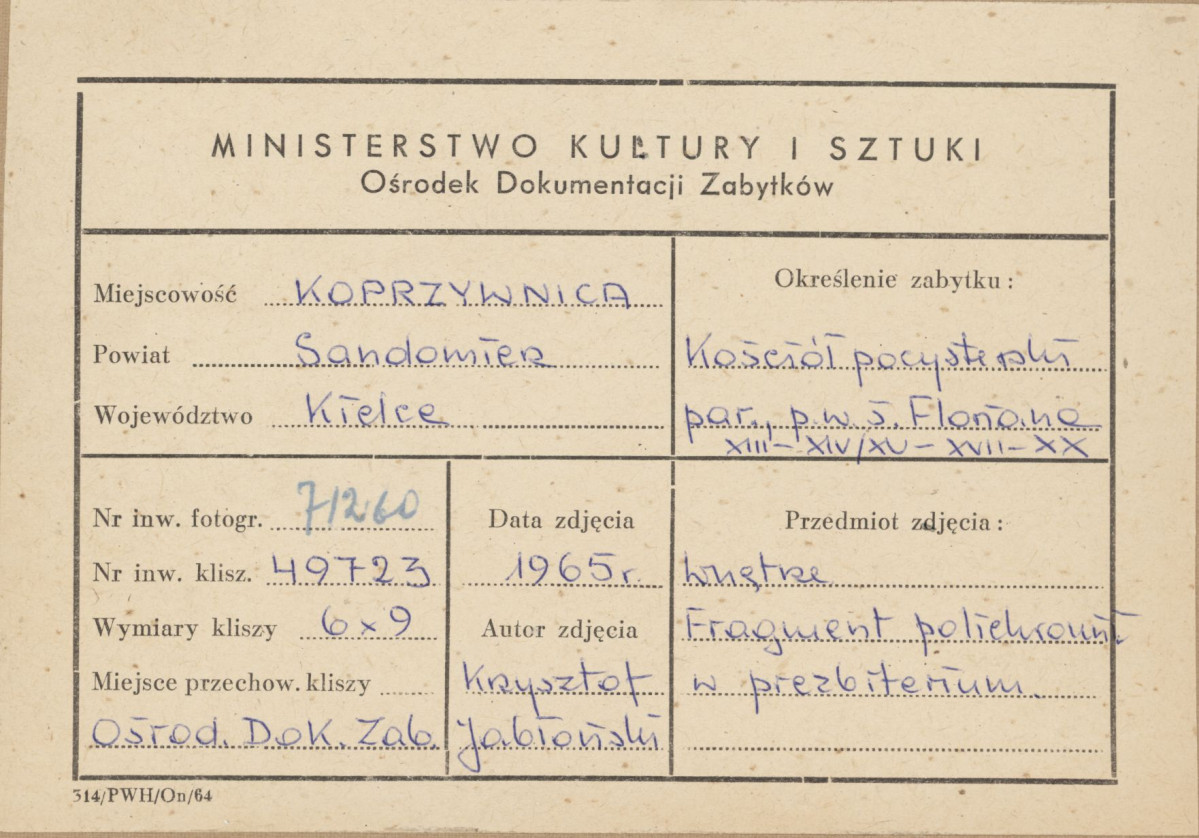 MINISTERSTWO KULTURY I SZTUKI
Ośrodek Dokumentacji Zabytków
Miejscowość KOPRZYWNICA
Powiat Sandomierz
Województwo Kielce
Określenie zabytku:
Kościół pocysterski
par., p.w. ś. Floriana
XIII – XIV/XV – XVII – XX
Nr inw. fotogr. 71260
Nr inw. klisz. 49723
Wymiary kliszy 6x9
Miejsce przechow. kliszy
Ośrod. Dok. Zab.
Data zdjęcia
1965r.
Autor zdjęcia
Krzysztof
Jabłoński
Przedmiot zdjęcia:
Wnętrze
Fragment polichromii
w prezbiterium.
314/PWH/On/64